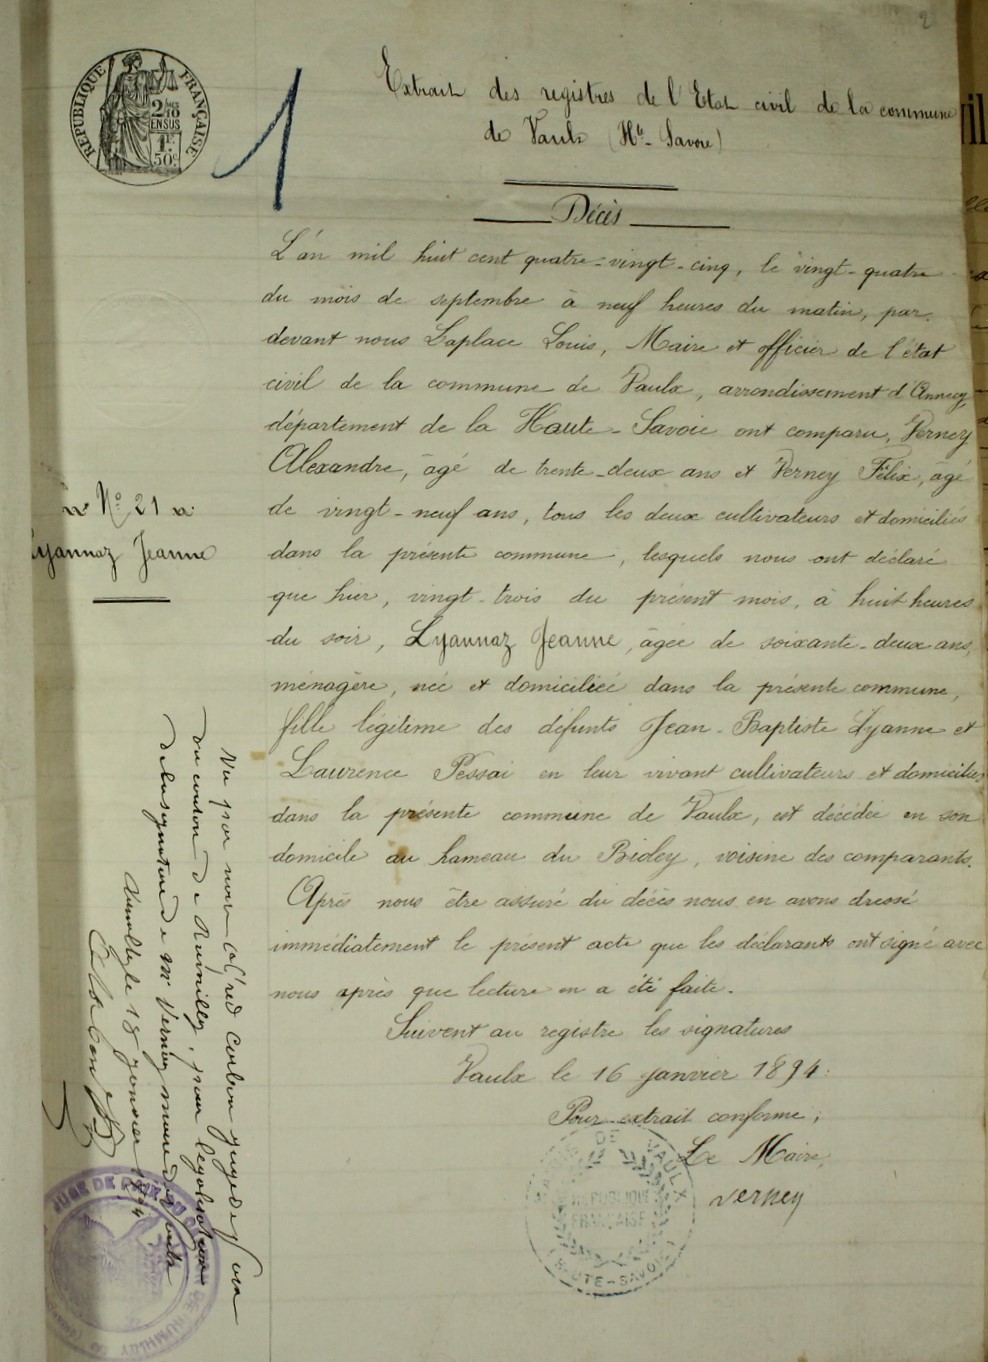 2
RÉPUBLIQUE FRANÇAISE
2/10 EN SUS
1F 50c
1
Extrait des registres de l'Etat civil de la commune
de Vaulx (Hte-Savoie)
Décès
L'an mil huit cent quatre-vingt-cinq, le vingt-quatre
du mois de septembre à neuf heures du matin, par-
devant nous Laplace Louis, Maire et officier de l'état
civil de la commune de Vaulx, arrondissement d'Annecy,
département de la Haute-Savoie ont comparu, Verney
Alexandre, âgé de trente-deux ans et Verney Félix, âgé
de vingt-neuf ans, tous les deux cultivateurs et domiciliés
dans la présente commune, lesquels nous ont déclaré
que hier, vingt-trois du présent mois, à huit heures
du soir, Lyannaz Jeanne, âgée de soixante-deux ans,
ménagère, née et domiciliée dans la présente commune,
fille légitime des défunts Jean-Baptiste Lyanne et
Laurence Pessai en leur vivant cultivateurs et domiciliés
dans la présente commune de Vaulx, est décédée en son
domicile au hameau du Bioley, voisine des comparants.
Après nous être assuré du décès nous en avons dressé
immédiatement le présent acte que les déclarants ont signé avec
nous après que lecture en a été faite.
Suivent au registre les signatures
Vaulx le 16 janvier 1894.
Pour extrait conforme,
Le Maire,
Verney
MAIRIE DE VAULX
RÉPUBLIQUE FRANÇAISE
(HAUTE-SAVOIE)
N° 21
Lyannaz Jeanne
Vu par nous Alfred Corbon juge de paix
du canton de Rumilly, pour légalisation
de la signature de Mr Verney maire de Vaulx
Rumilly le 18 janvier 1894
JUGE DE PAIX DU CANTON DE RUMILLY